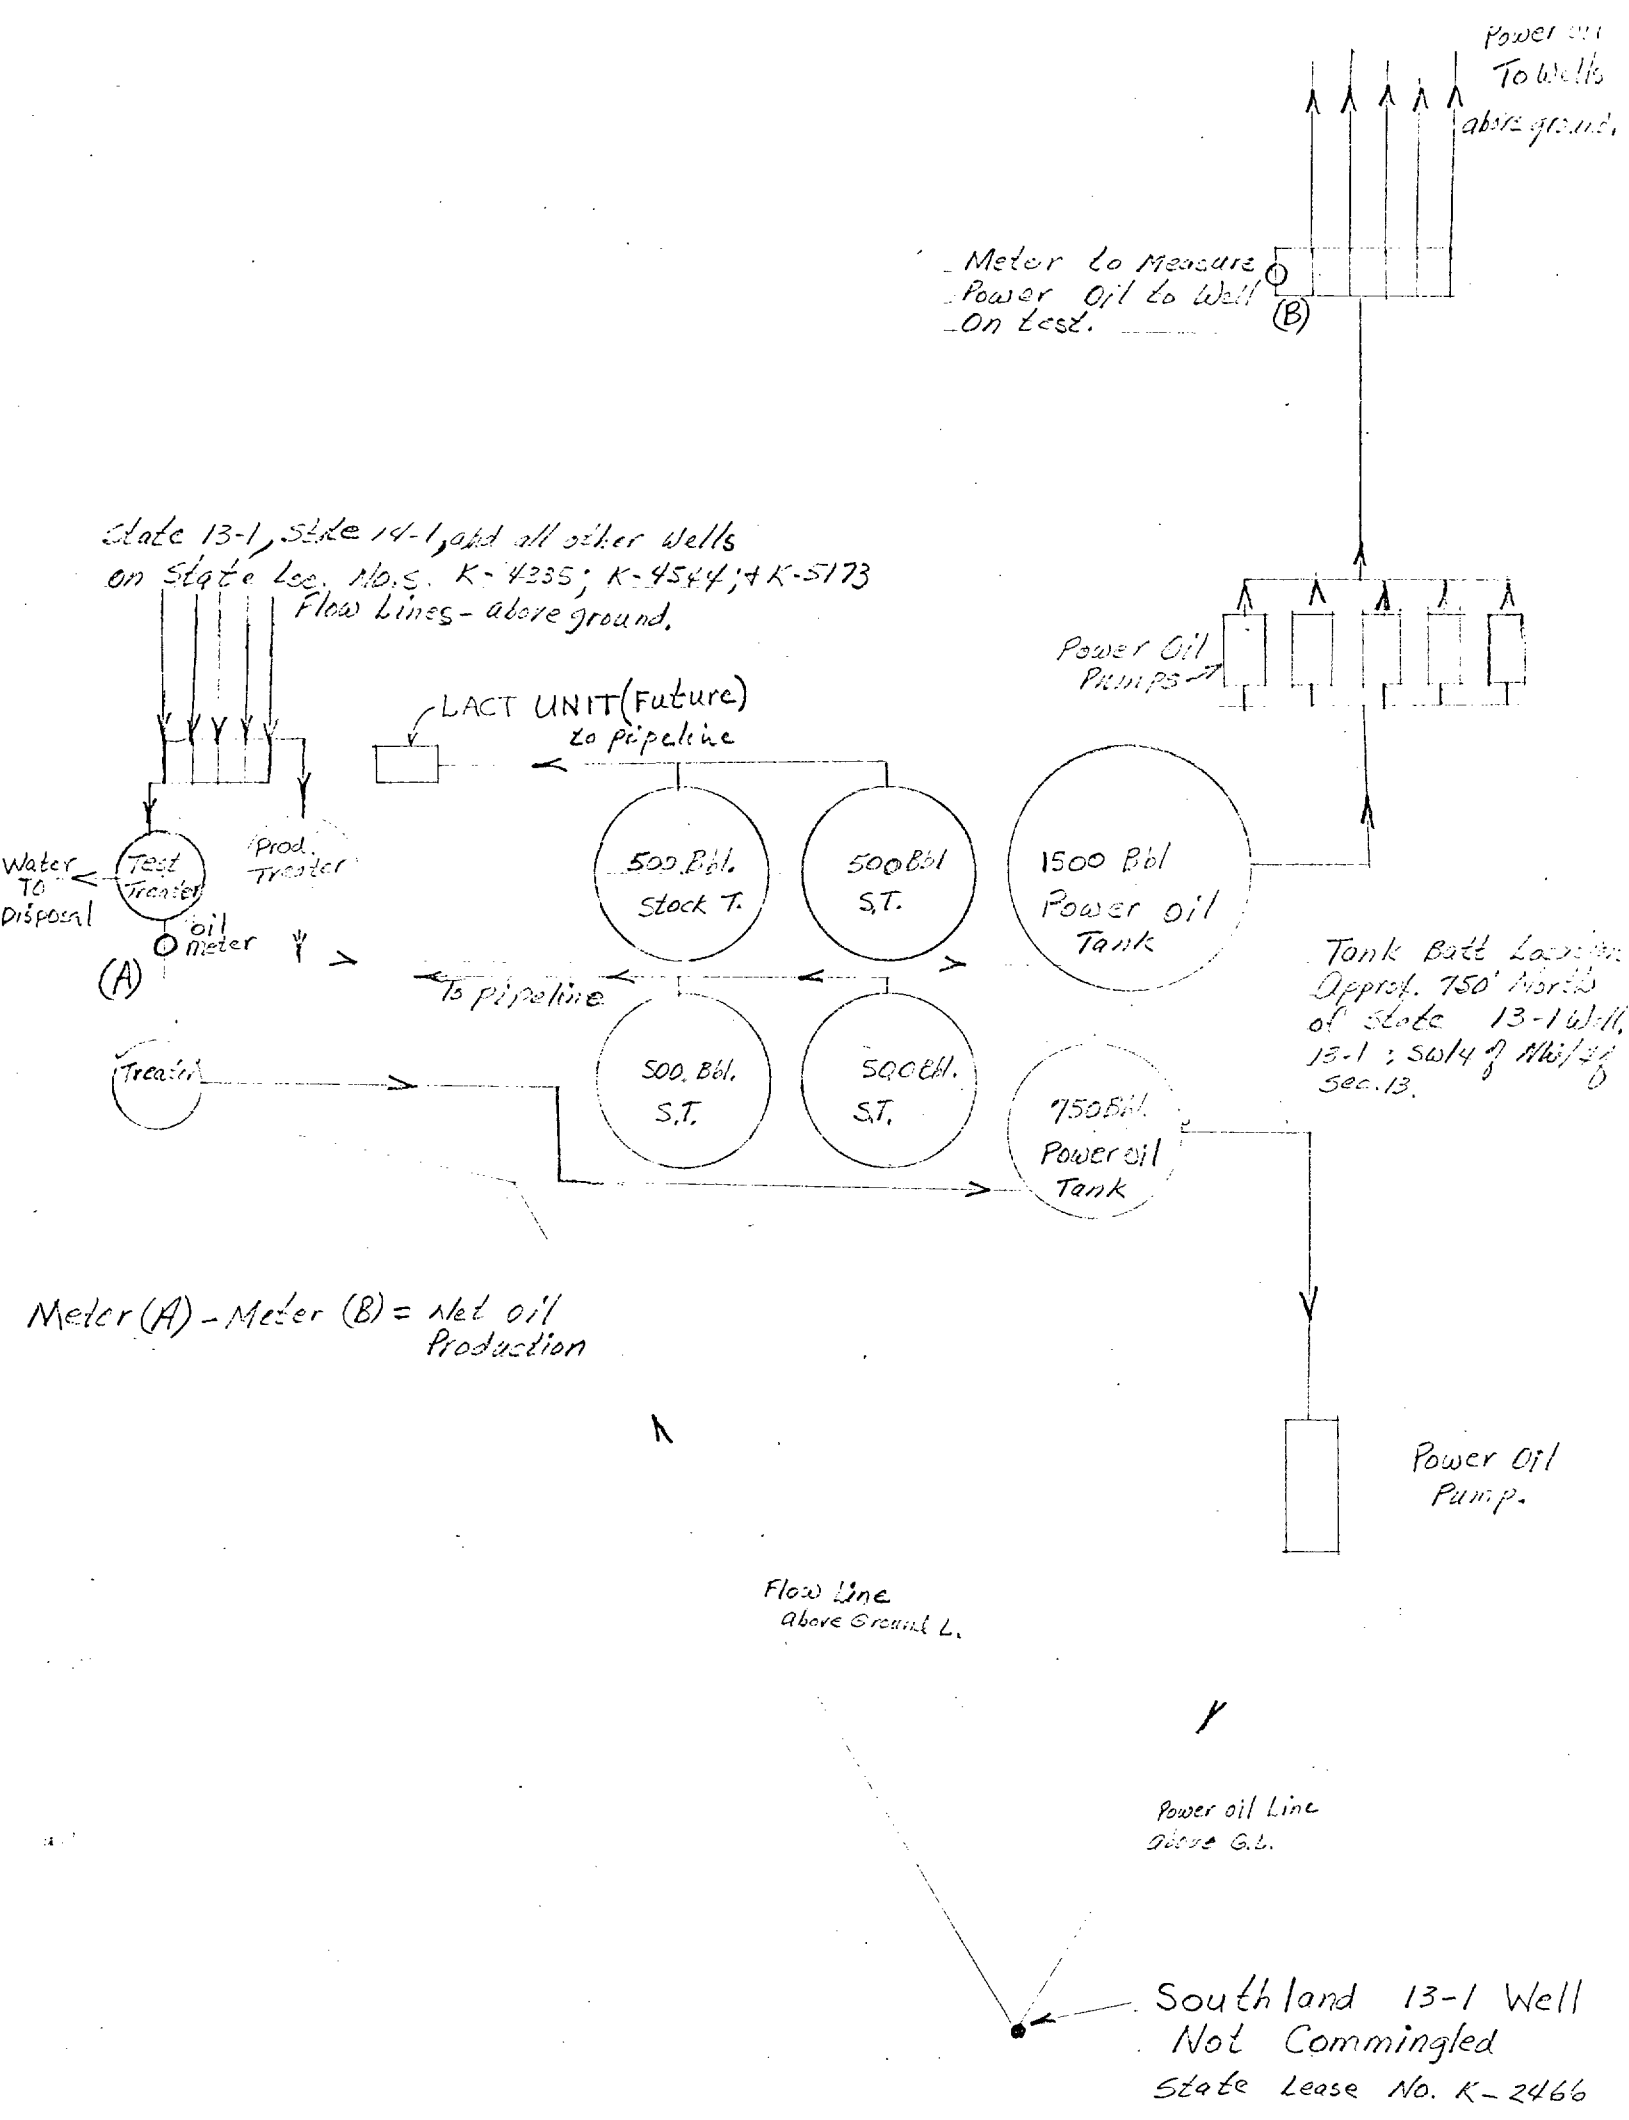 Power oil
To Wells
above ground.
Meter to Measure
Power Oil to Well
On test.
(B)
State 13-1, State 14-1, and all other Wells
on State Lse. No.s. K-4335; K-4544; + K-5173
Flow Lines - above ground.
Power Oil
Pumps
LACT UNIT (Future)
to pipeline
Water
TO
Disposal
Test
Treater
Prod.
Treater
oil
meter
(A)
500 Bbl.
Stock T.
500 Bbl
S.T.
1500 Bbl
Power oil
Tank
To pipeline
Tank Batt Location
Approx. 750' North
of State 13-1 Well.
13-1: SW/4 of NW/4 of
Sec. 13.
Treater
500. Bbl.
S.T.
500 Bbl.
S.T.
750 Bbl.
Power oil
Tank
Meter (A) - Meter (B) = Net oil
Production
Power Oil
Pump.
Flow Line
Above Ground L.
Power oil Line
above G.L.
Southland 13-1 Well
Not Commingled
State Lease No. K-2466